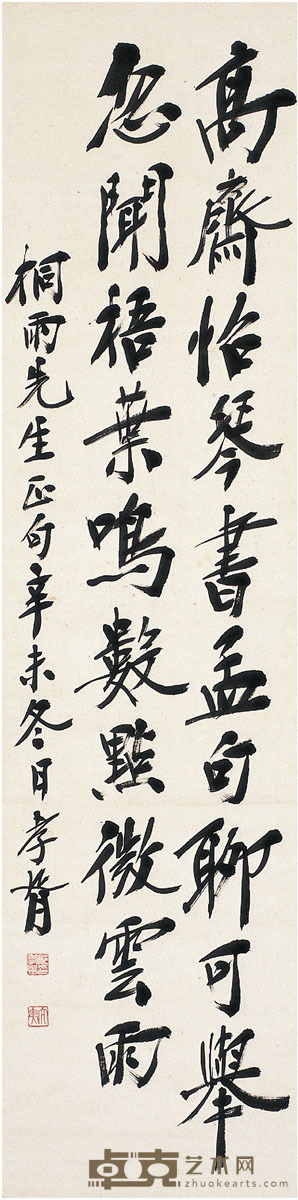 高齋怡琴書孟句聊可舉
忽聞梧葉鳴數點微雲雨
桐雨先生正句辛未冬日孝胥
卓克艺术网
zhuokearts.com